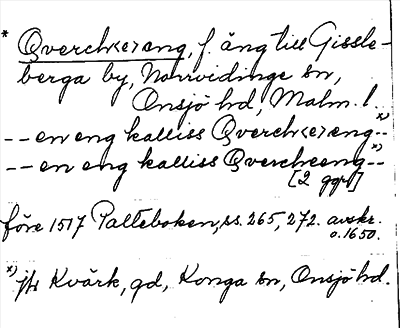 * Qverch<e>ang, f. äng till Gissle-
berga by, Norrvidinge sn,
Onsjö hd, Malm. l.
-- en eng kalliss Qverch<e>eng --*)
-- en eng kalliss Qvercheeng --*)
[2 ggr]
före 1517 Palteboken, ss. 265, 272. avskr.
o. 1650.
*) jfr Kvärk, gd, Konga sn, Onsjö hd.